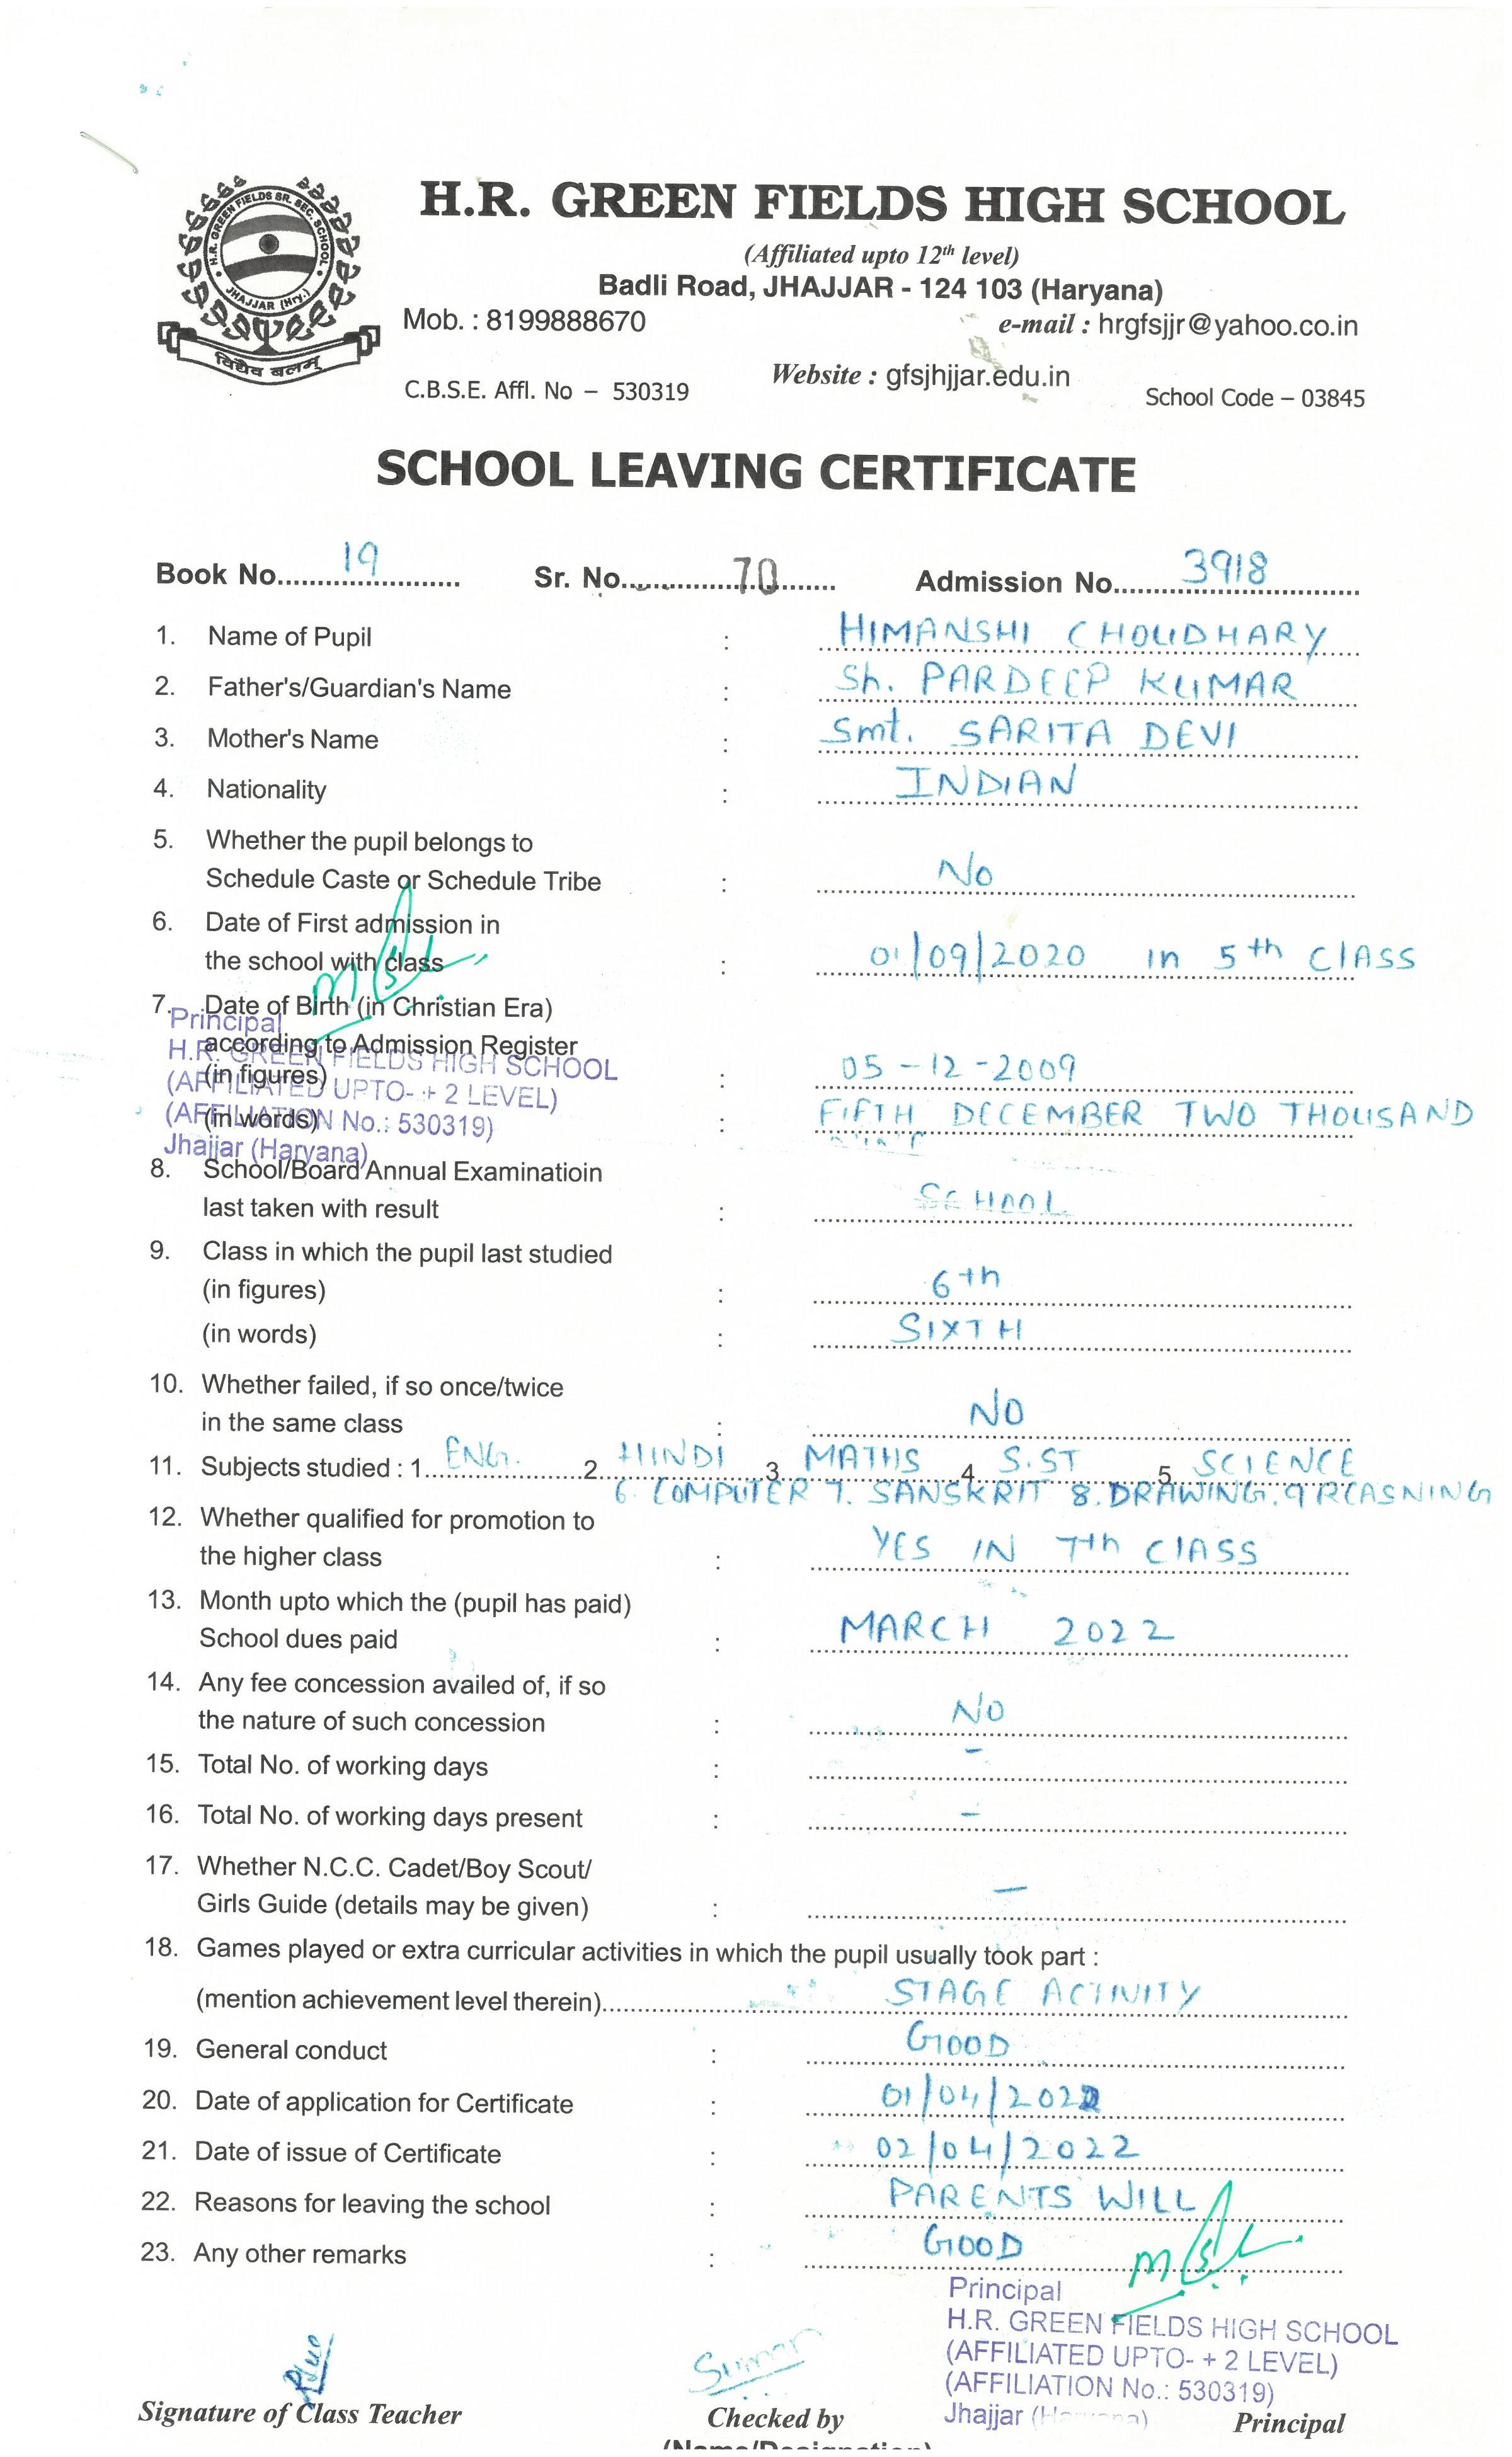 H.R. GREEN FIELDS SR. SEC. SCHOOL
JHAJJAR (Hry.)
विद्यैव बलम्
H.R. GREEN FIELDS HIGH SCHOOL
(Affiliated upto 12th level)
Badli Road, JHAJJAR - 124 103 (Haryana)
Mob. : 8199888670 e-mail : hrgfsjjr@yahoo.co.in
Website : gfsjhjjar.edu.in
C.B.S.E. Affl. No – 530319 School Code – 03845
SCHOOL LEAVING CERTIFICATE
Book No. 19 Sr. No. 70 Admission No. 3918
1. Name of Pupil : HIMANSHI CHOUDHARY
2. Father's/Guardian's Name : Sh. PARDEEP KUMAR
3. Mother's Name : Smt. SARITA DEVI
4. Nationality : INDIAN
5. Whether the pupil belongs to
Schedule Caste or Schedule Tribe : No
6. Date of First admission in
the school with class : 01/09/2020 in 5th CLASS
7. Date of Birth (in Christian Era)
according to Admission Register
(in figures) : 05-12-2009
(in words) : FIFTH DECEMBER TWO THOUSAND
Principal
H.R. GREEN FIELDS HIGH SCHOOL
(AFFILIATED UPTO- + 2 LEVEL)
(AFFILIATION No.: 530319)
Jhajjar (Haryana)
8. School/Board Annual Examinatioin
last taken with result : SCHOOL
9. Class in which the pupil last studied
(in figures) : 6th
(in words) : SIXTH
10. Whether failed, if so once/twice
in the same class : NO
11. Subjects studied : 1. ENG. 2. HINDI 3. MATHS 4. S.ST 5. SCIENCE
6. COMPUTER 7. SANSKRIT 8. DRAWING. 9 REASNING
12. Whether qualified for promotion to
the higher class : YES IN 7th CLASS
13. Month upto which the (pupil has paid)
School dues paid : MARCH 2022
14. Any fee concession availed of, if so
the nature of such concession : NO
15. Total No. of working days : -
16. Total No. of working days present : -
17. Whether N.C.C. Cadet/Boy Scout/
Girls Guide (details may be given) : -
18. Games played or extra curricular activities in which the pupil usually took part :
(mention achievement level therein) STAGE ACTIVITY
19. General conduct : GOOD
20. Date of application for Certificate : 01/04/2022
21. Date of issue of Certificate : 02/04/2022
22. Reasons for leaving the school : PARENTS WILL
23. Any other remarks : GOOD
Principal
H.R. GREEN FIELDS HIGH SCHOOL
(AFFILIATED UPTO- + 2 LEVEL)
(AFFILIATION No.: 530319)
Jhajjar (Haryana)
Suman
Signature of Class Teacher Checked by Principal
(Name/Designation)